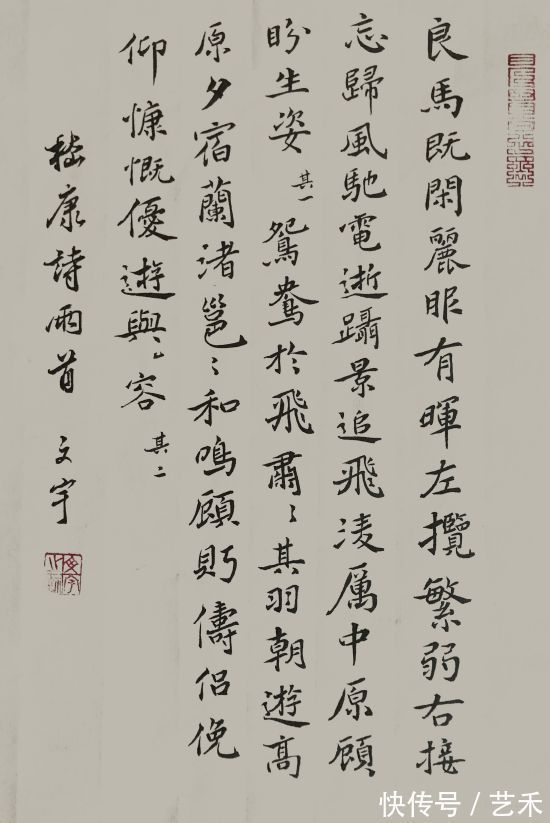 良馬既閑麗服有暉左攬繁弱右接
忘歸風馳電逝躡景追飛凌厲中原顧
盼生姿 其一 鴛鴦於飛肅〻其羽朝遊高
原夕宿蘭渚邕〻和鳴顧眄儔侶俛
仰慷慨優遊與〻容 其二
嵇康詩兩首 文宇
快传号 / 艺禾